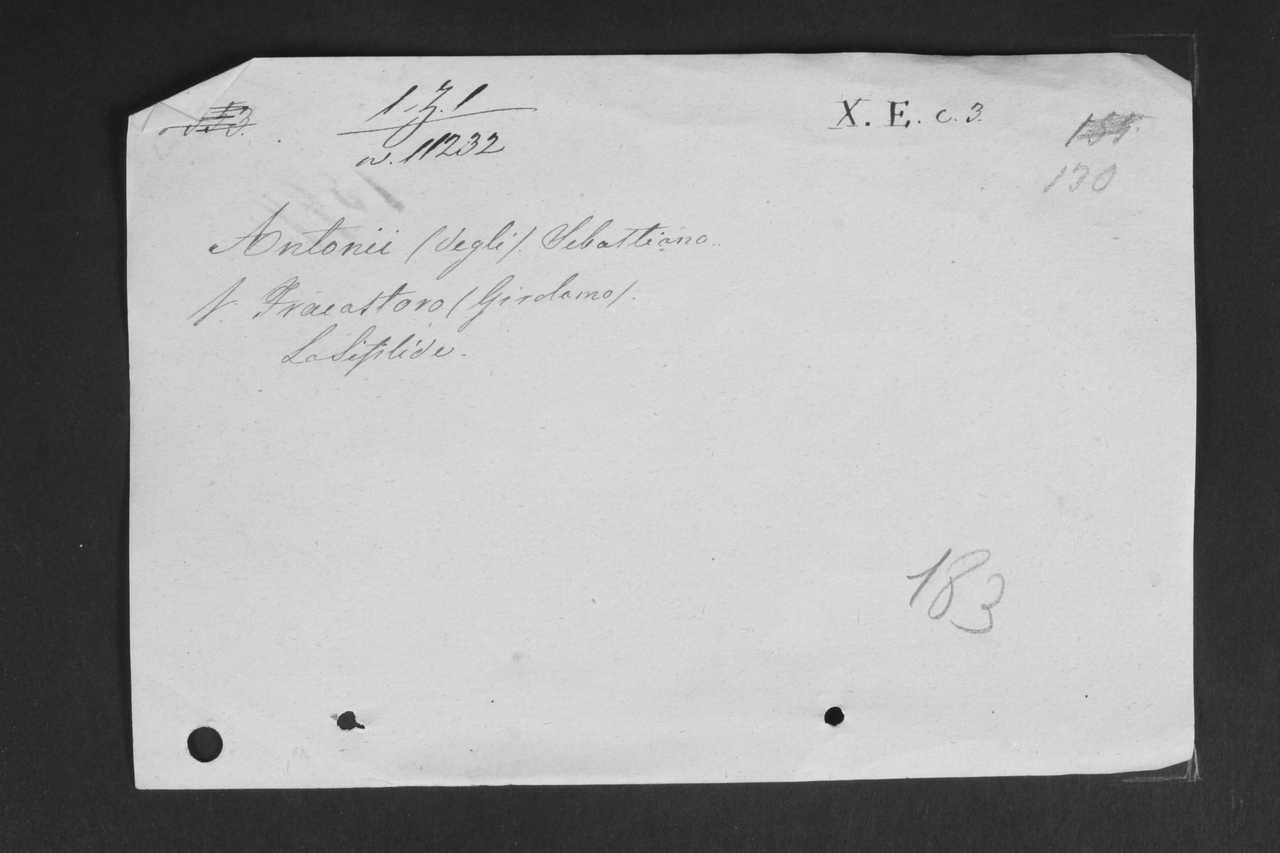 1-Z.1
a. 11232
X. E. c. 3.
130
Antonii (degli). Sebastiano.
V. Fracastoro (Girolamo).
La Sifilide.
183